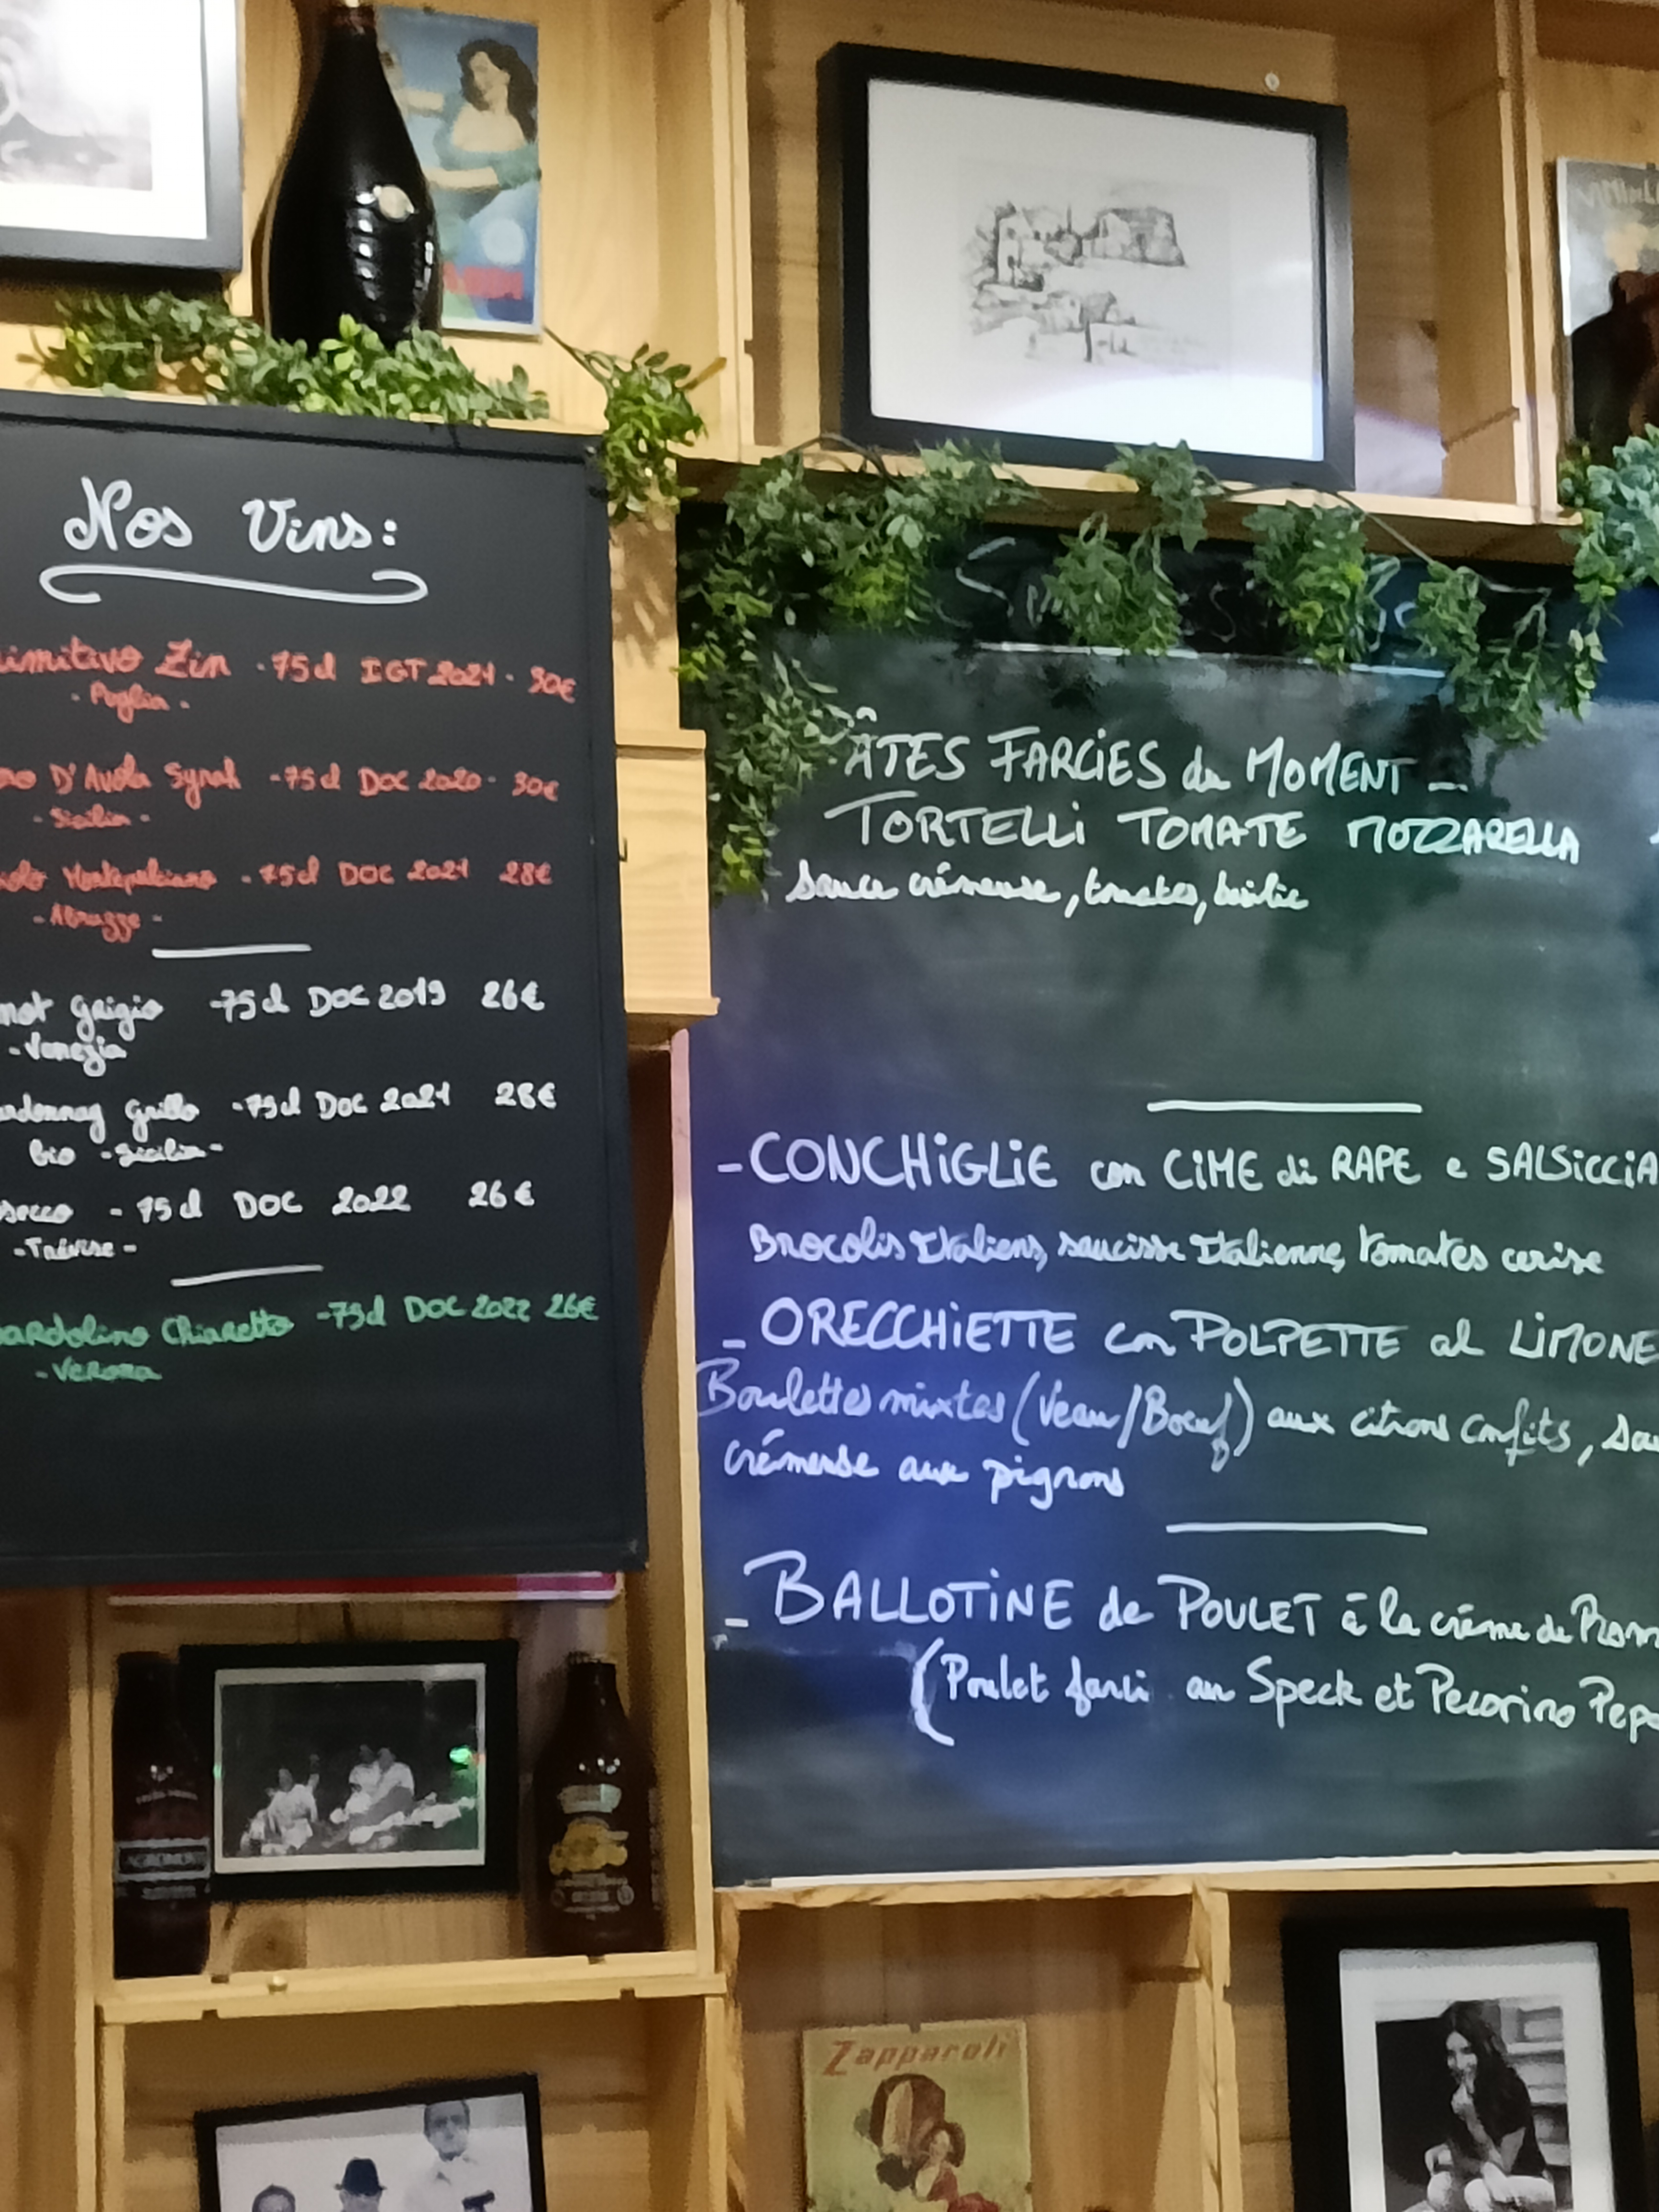 Nos Vins:
imitivo Zin - 75cl IGT 2021 - 30€
- Puglia -
ro D'Avola Syrah - 75cl DOC 2020 - 30€
- Sicilia -
olo Montepulciano - 75cl DOC 2021 28€
- Abruzzo -
not Grigio - 75cl DOC 2019 26€
- Venezia
ardonnay Grillo - 75cl DOC 2021 28€
bio - Sicilia -
secco - 75cl DOC 2022 26€
- Trévise -
ardolino Chiaretto - 75cl DOC 2022 26€
- Verona
ÂTES FARCIES du MOMENT -
TORTELLi TOMATE MOZZARELLA
Sauce crémeuse, tomates, basilic
- CONCHiGLiE con CiME di RAPE e SALSiCCiA
Brocolis Italiens, saucisse Italienne, tomates cerise
- ORECCHiETTE con POLPETTE al LiMONE
Boulettes mixtes (Veau/Boeuf) aux citrons confits, sau
crémeuse aux pignons
- BALLOTiNE de POULET à la crème de
(Poulet farci au Speck et Pecorino Pepe
Zapparoli